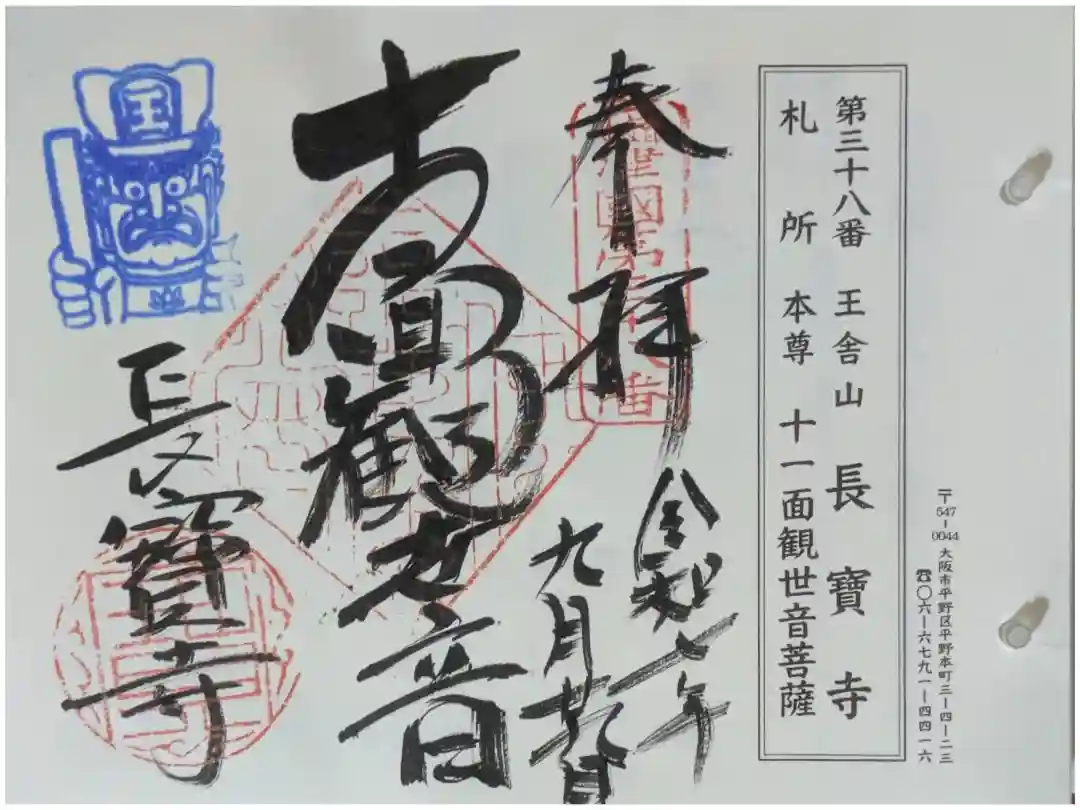 〒547-0044 大阪市平野区平野本町三-四-二三
☎〇六-六七九一-四四一六
第三十八番 王舎山 長寶寺
札所本尊 十一面観世音菩薩
奉拝
令和七年
九月 日
十一面観世音
長寶寺
王